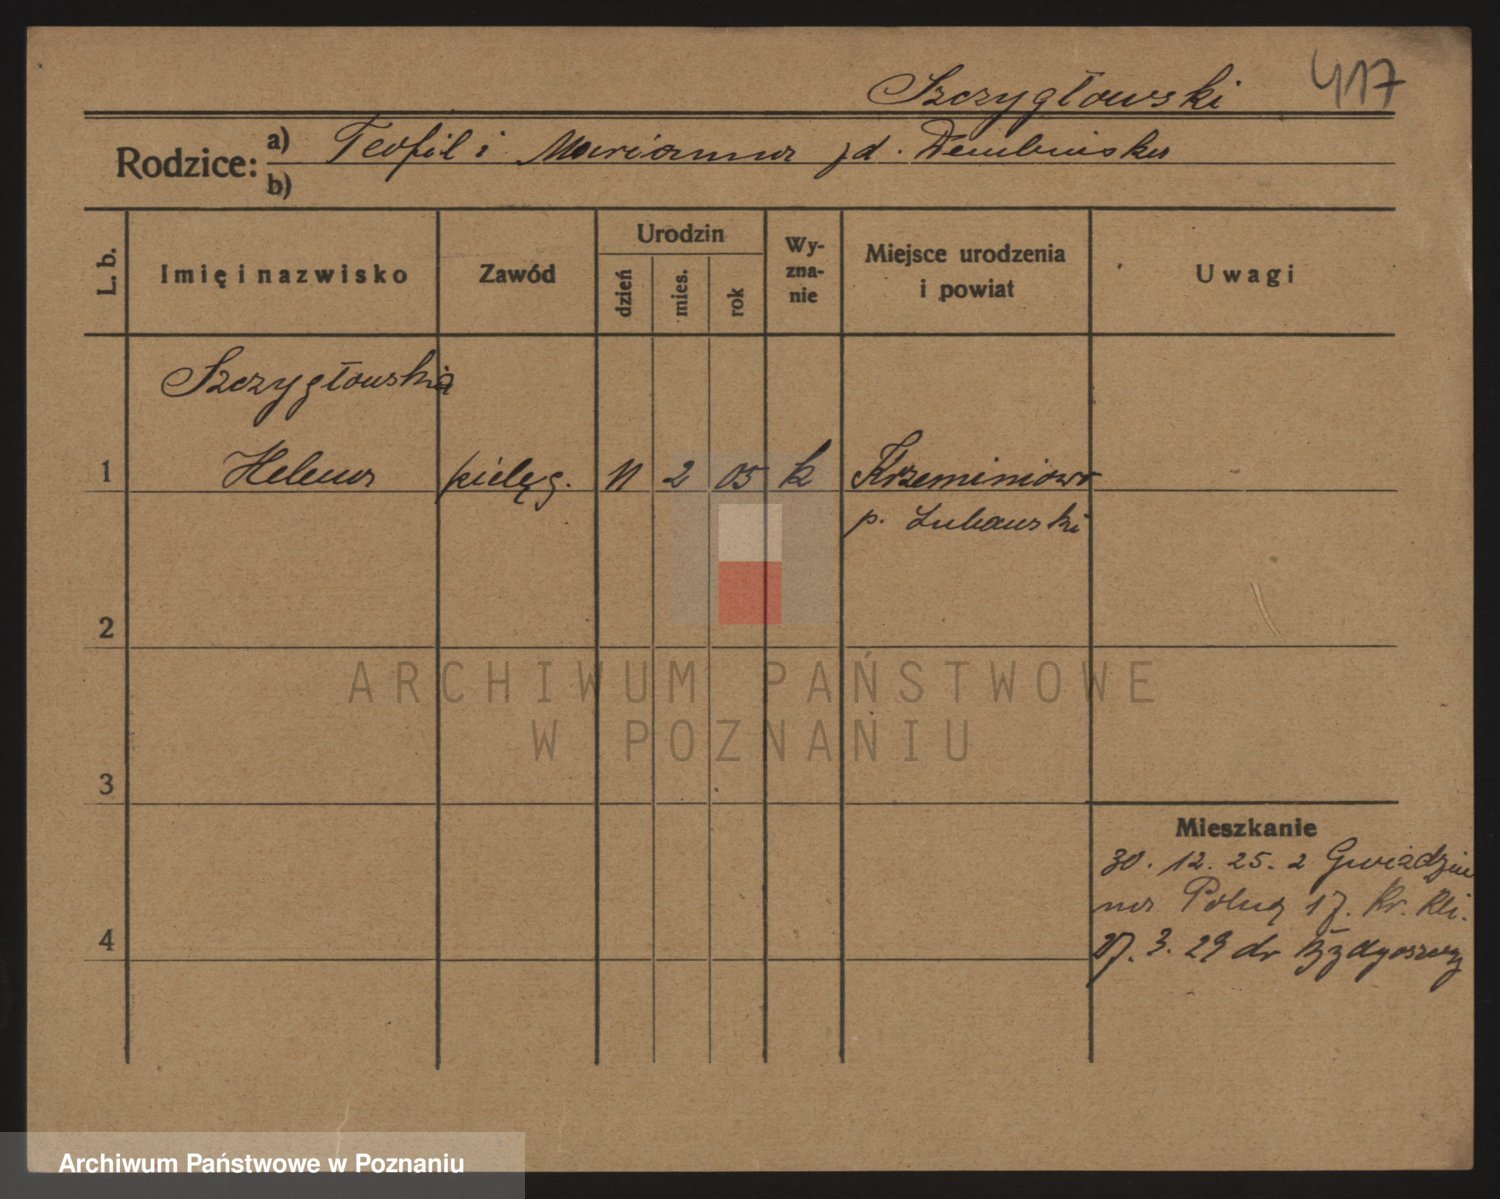 Szczygłowski 417
Rodzice: a) Teofil i Marianna zd. Dembińska
b)
L. b. Imię i nazwisko Zawód Urodzin dzień mies. rok Wyznanie Miejsce urodzenia i powiat Uwagi
Szczygłowska
1 Helena pielęg. 11 2 05 k Krzeminiewo
p. Lubawski
2
ARCHIWUM PAŃSTWOWE
W POZNANIU
3
Mieszkanie
30. 12. 25. z
na 17.
4 17. 3. 29 do Bydgoszczy
Archiwum Państwowe w Poznaniu